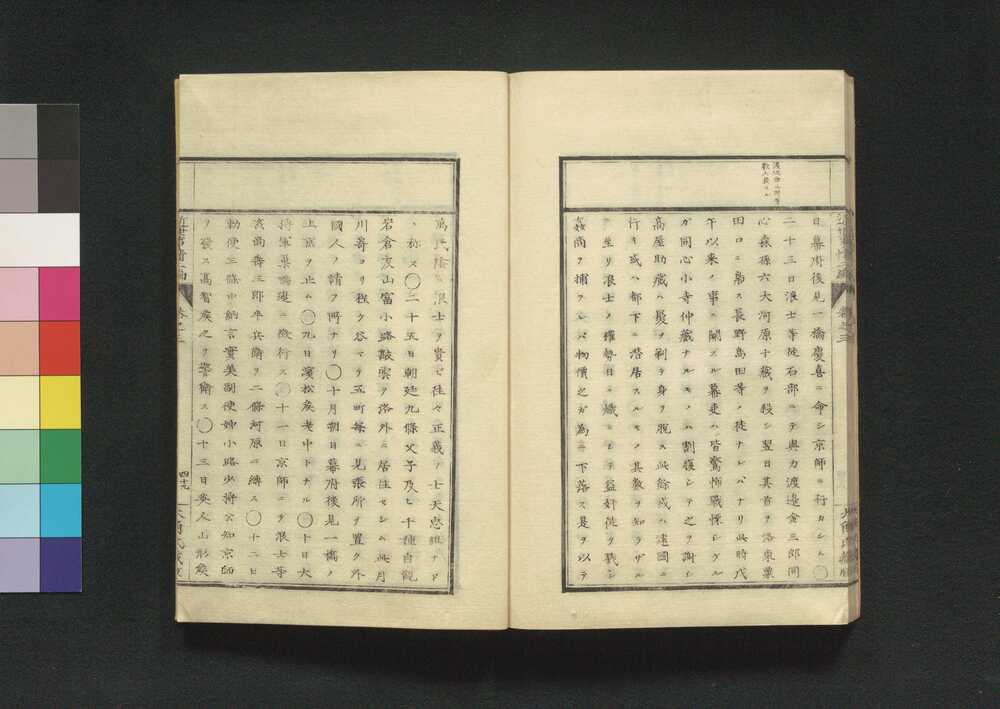 日幕府後見一橋慶喜ニ命シ京師ニ行カシム〇
二十三日浪士等陸石部ニテ與力渡邉金三郎同
心森孫六大河原十藏ヲ殺シ翌日其首ヲ洛東粟
田口ニ梟ス長野島田等ノ徒ナレハナリ此時戊
午以来ノ事ニ關スル幕吏ハ皆驚怖戰慄シケル
ガ同心小寺仲藏ナルモノハ割腹シテ之ヲ謝シ
高屋助藏ハ髮ヲ剃テ身ヲ脱ス此餘或ハ遠國ニ
行キ或ハ都下ニ潜居スルモノ其數ヲ知ラザル
ニ至リ浪士ノ權勢日ニ熾ニシテ益奸徒ヲ戮シ
姦商ヲ捕フレバ物價之ガ為ニ下落ス是ヲ以テ
萬民陰ニ浪士ヲ貴ビ往々正義ノ士天忠組ナド
ヽ称ス〇二十五日朝廷九條父子及ヒ千種自觀
岩倉友山富小路敬雲ヲ洛外ニ居住セシム此月
川哥ヨリ程ケ谷マテ五町毎ニ見張所ヲ置ク外
國人ノ請フ所ナリ〇十月朔日幕府後見一橋ノ
上京ヲ止ム〇九日濱松矦老中トナル〇十日大
將軍巣鴨邉ニ微行ス〇十一日京師ニテ浪士等
高壽三郎平兵衞ヲ二條河原ニ縛ス〇十二日
勅使三條中納言實美副使姉小路少將公知京師
ヲ發ス高智矦之ヲ警衞ス〇十三日英人山形矦
四十九